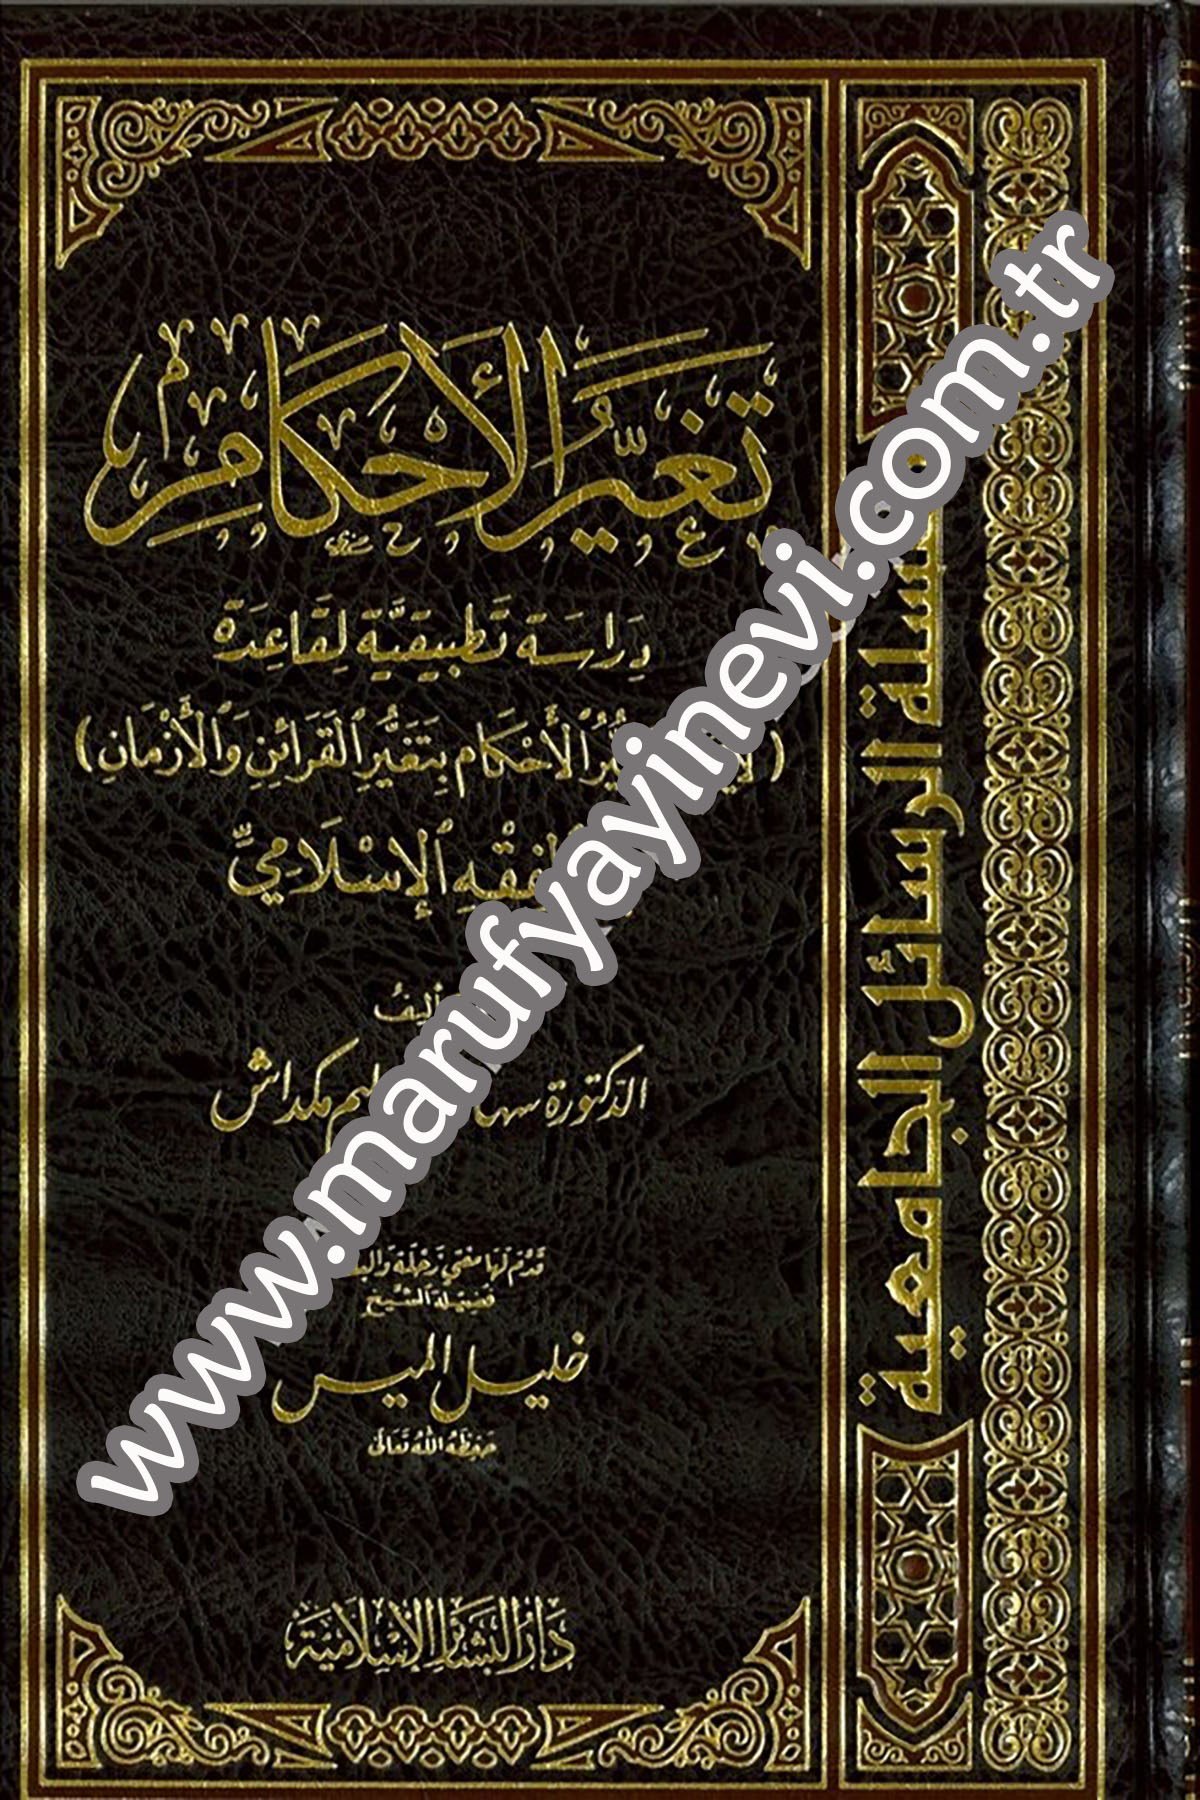 تَغَيُّرُ الْأَحْكَامِ
دِرَاسَةٌ تَطْبِيقِيَّةٌ لِقَاعِدَةِ
الْأَحْكَامِ بِتَغَيُّرِ الْقَرَائِنِ وَالْأَزْمَانِ)
الْإِسْلَامِيِّ
الدكتورة مكداش
قَدَّمَ لَهَا مفتي زحلة
فضيلة الشيخ
خليل الميس
حفظه الله تعالى
دار البشائر الإسلامية
الرسائل الجامعية
www.marufyayinevi.com.tr